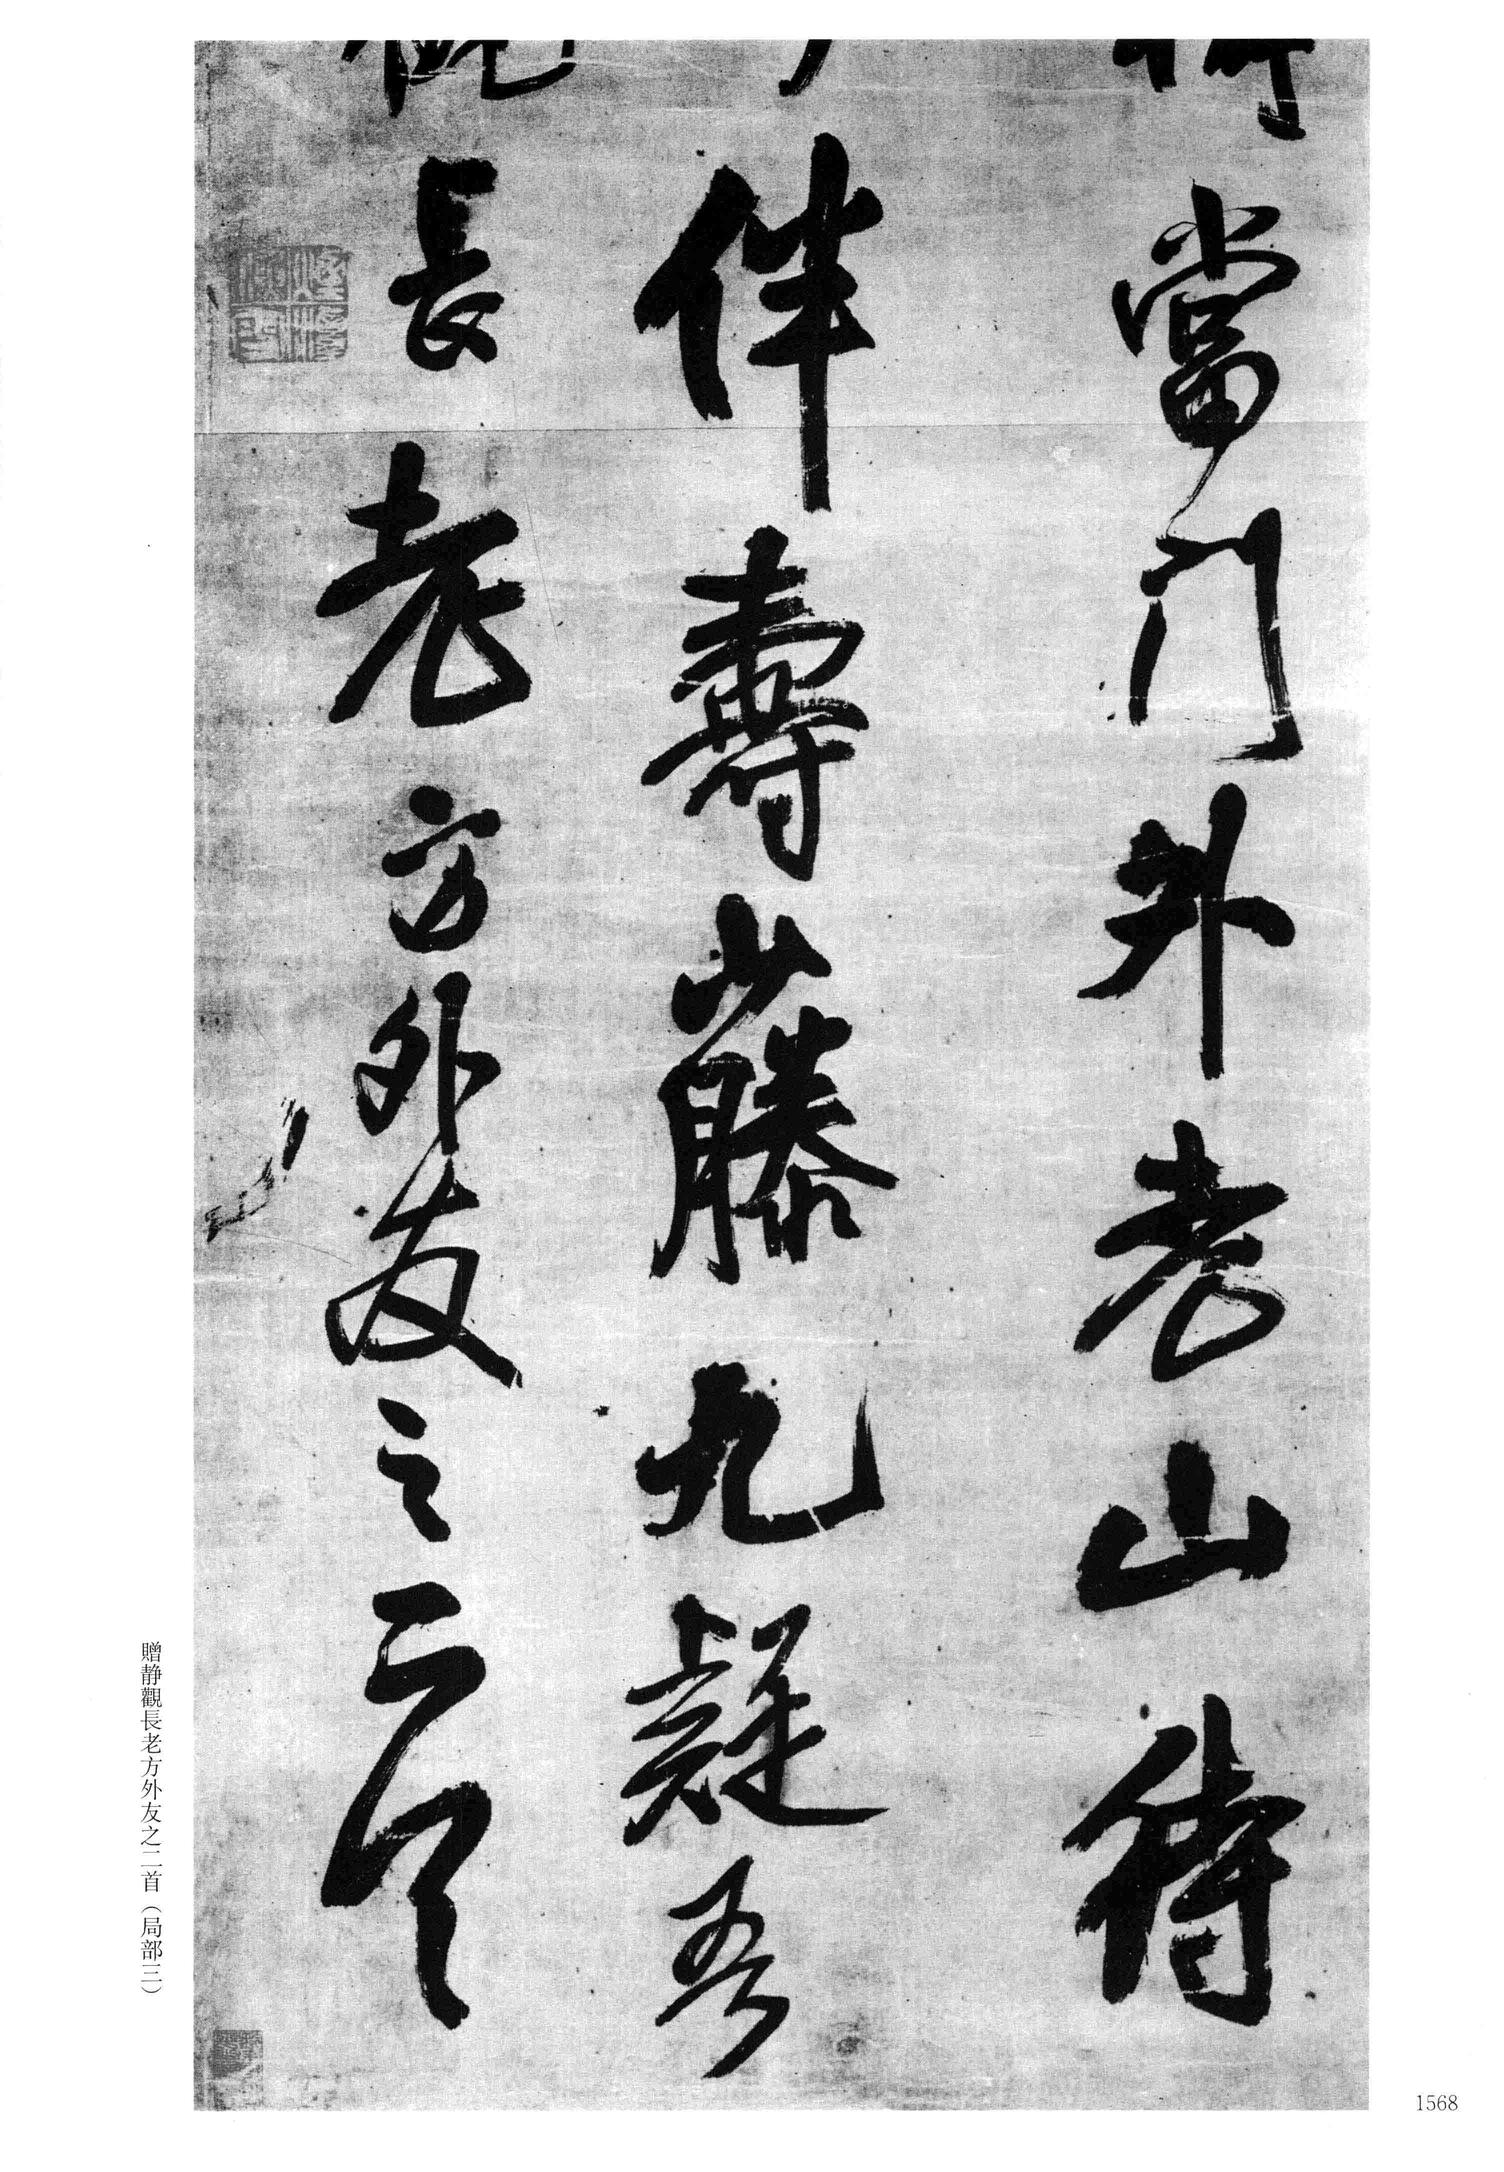 當門外老山待
伴壽藤九疑吾
長老方外友之二首
贈静觀長老方外友之二首（局部三）
1568